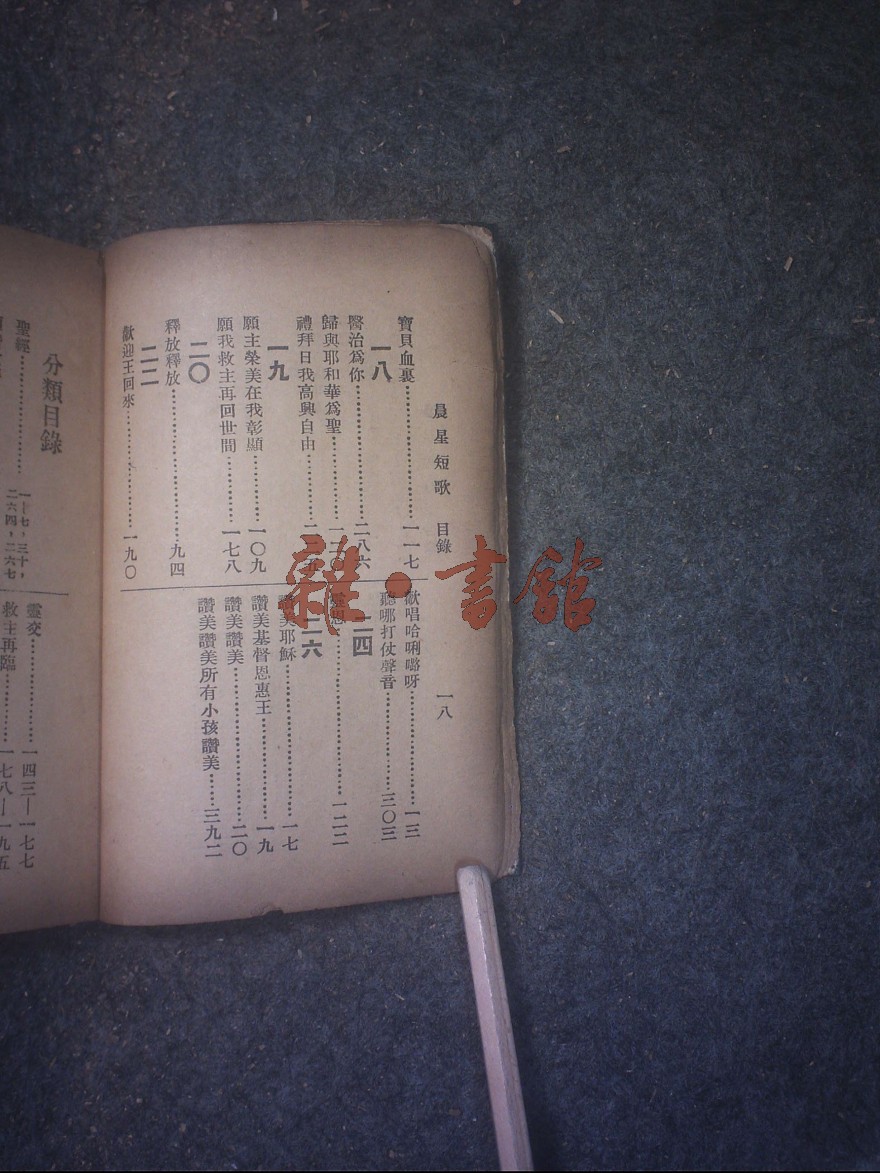 晨星短歌 目錄 一八
寶貝血裏……一一七
一八
醫治爲你……二八六
歸與耶和華爲聖……
禮拜日我高興自由……
一九
願主榮美在我彰顯……一〇九
願我救主再回世間……一七八
二〇
釋放釋放……九四
二二
歡迎王回來……一九〇
歡唱哈唎嚕呀……一三
聽哪打仗聲音……三〇三
二四
……一二二
二六
讚美耶穌……一七
讚美基督恩惠王……一九
讚美讚美……二〇
讚美讚美所有小孩讚美……三九二
分類目錄
聖經……一十七，三十，
二六四，二六七
靈交……一四三—一七七
救主再臨……一七八—一九五
雜·書館